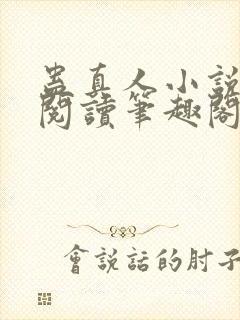 蛊真人小說
閱讀筆趣閣
會說話的肘子